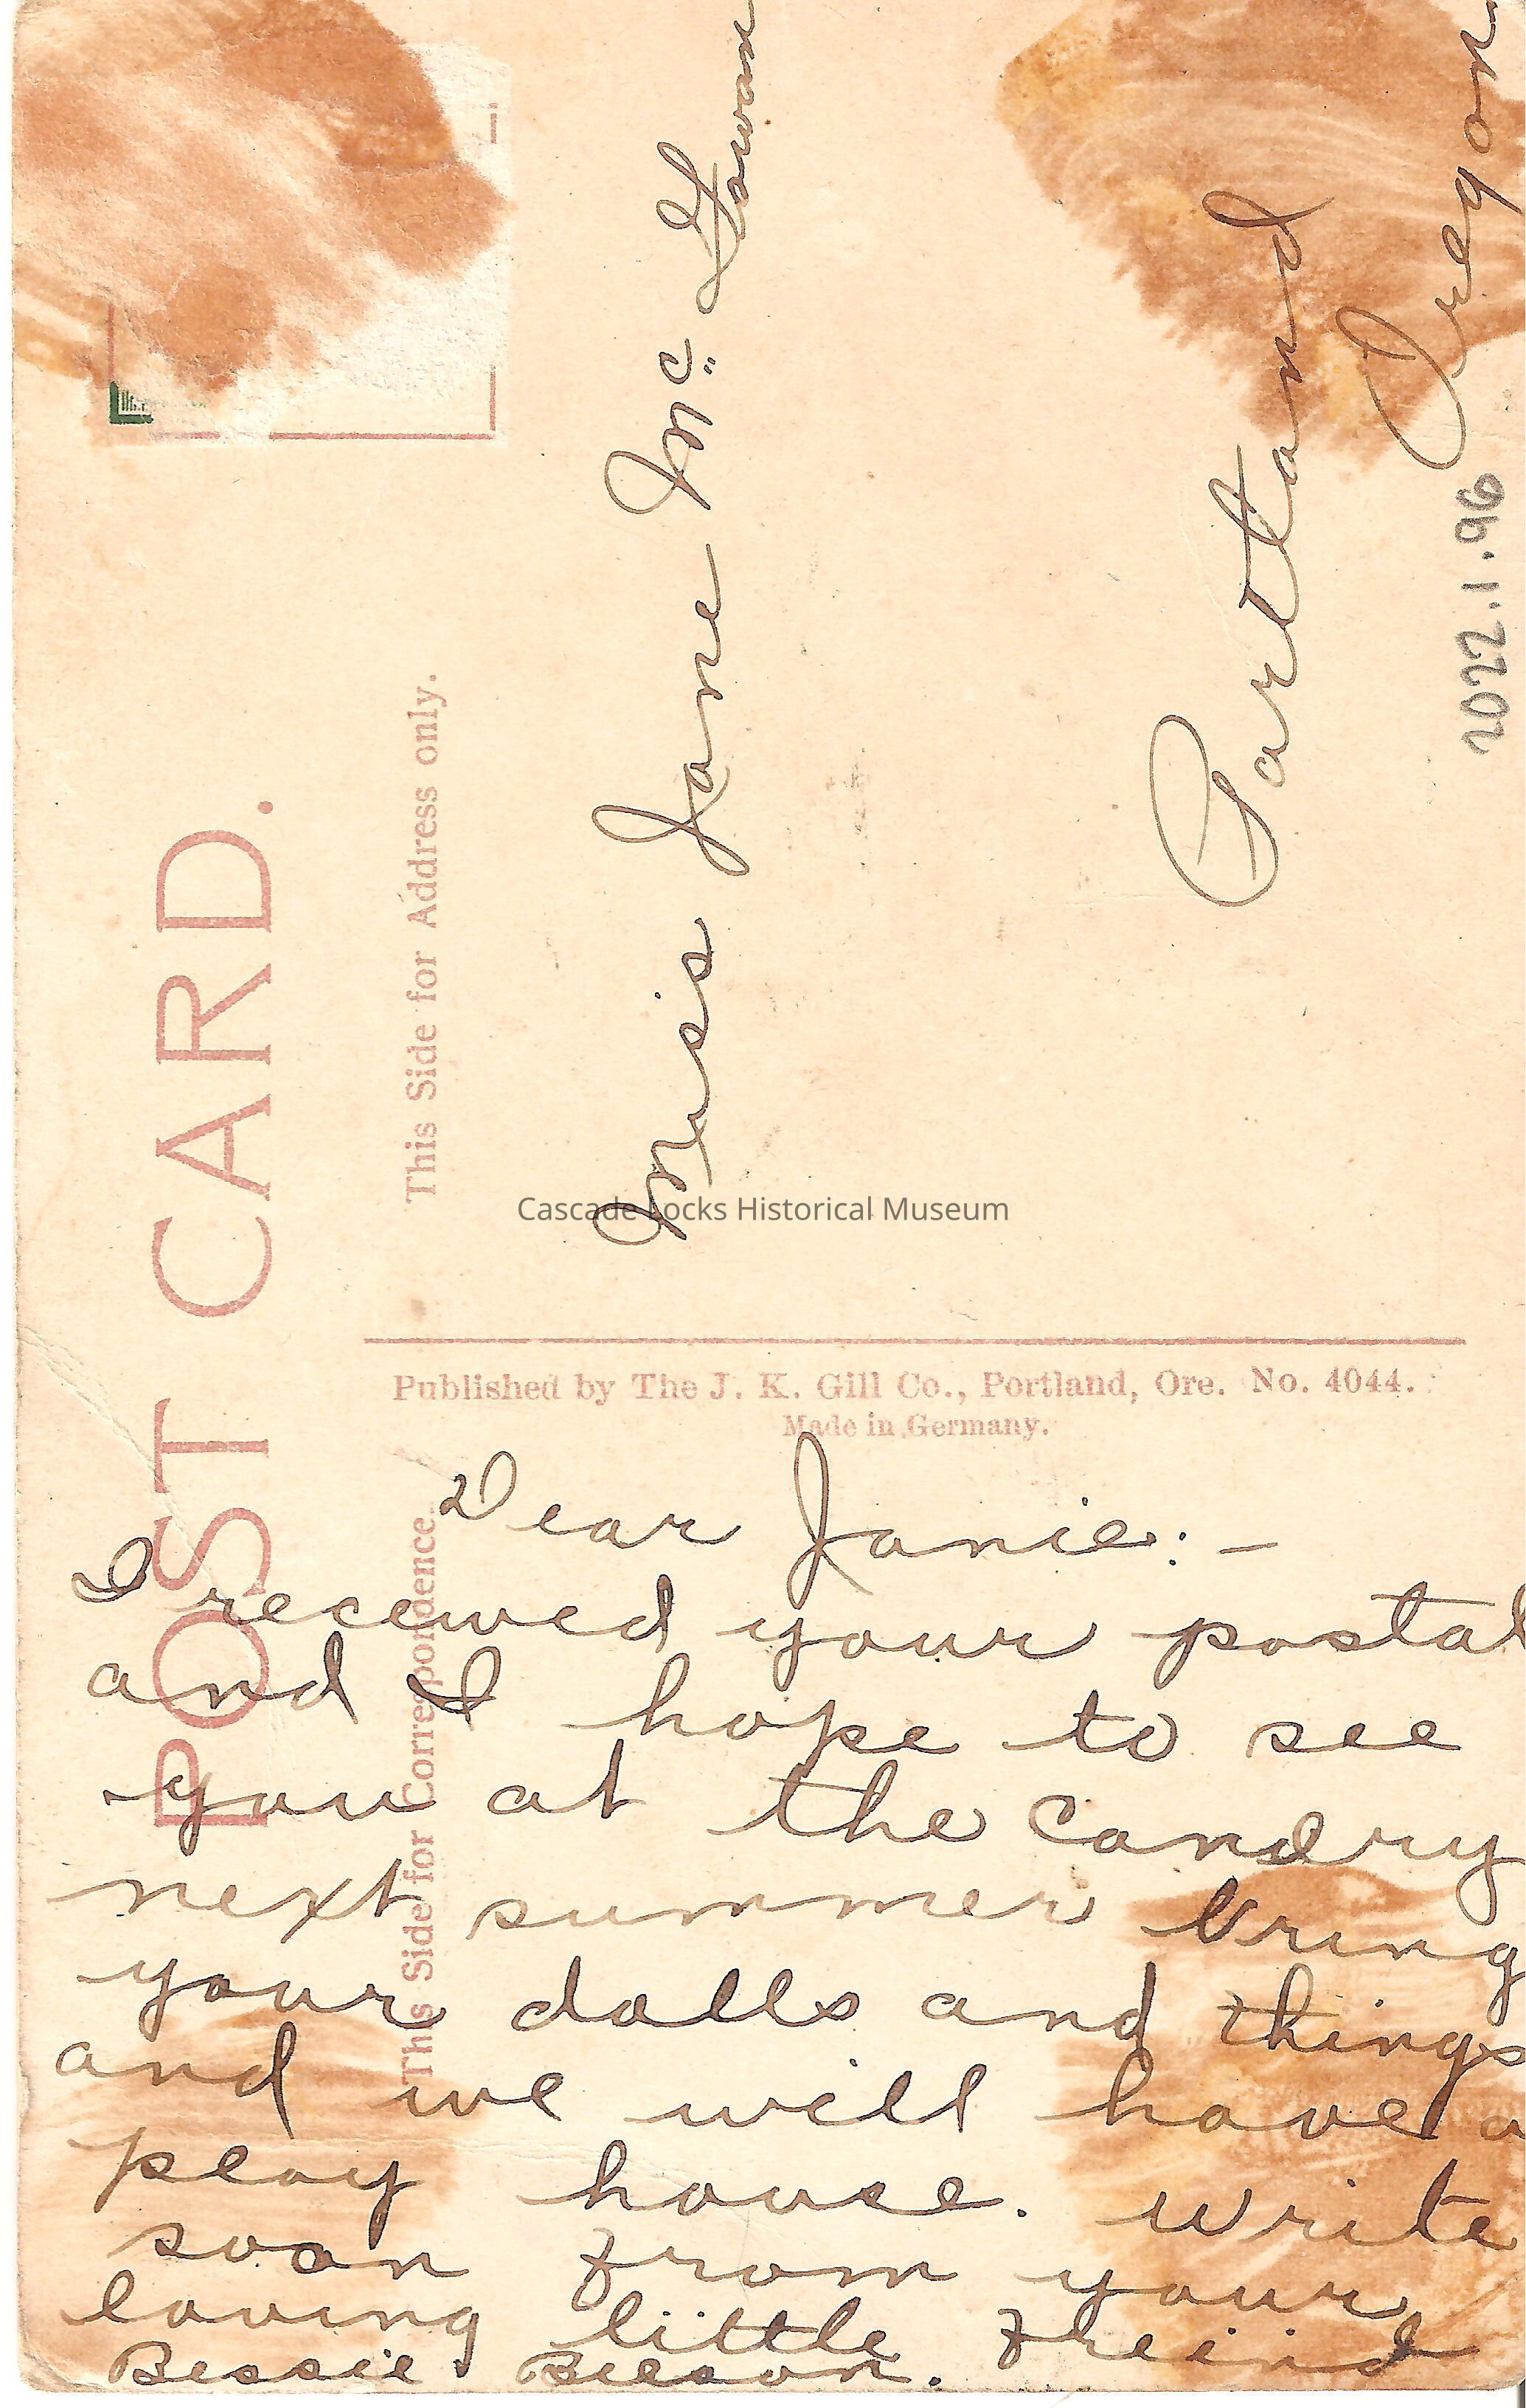 POST CARD.
This Side for Address only.
Miss Jane Mc. Gowan
Portland
Oregon
2022.1.96
Cascade Locks Historical Museum
Published by The J. K. Gill Co., Portland, Ore. No. 4044.
Made in Germany.
This Side for Correspondence
Dear Janie:—
I received your postal
and I hope to see
you at the candry
next summer bring
your dolls and things
and we will have a
play house. write
soon from your
loving little freind
Bessie Beeson.